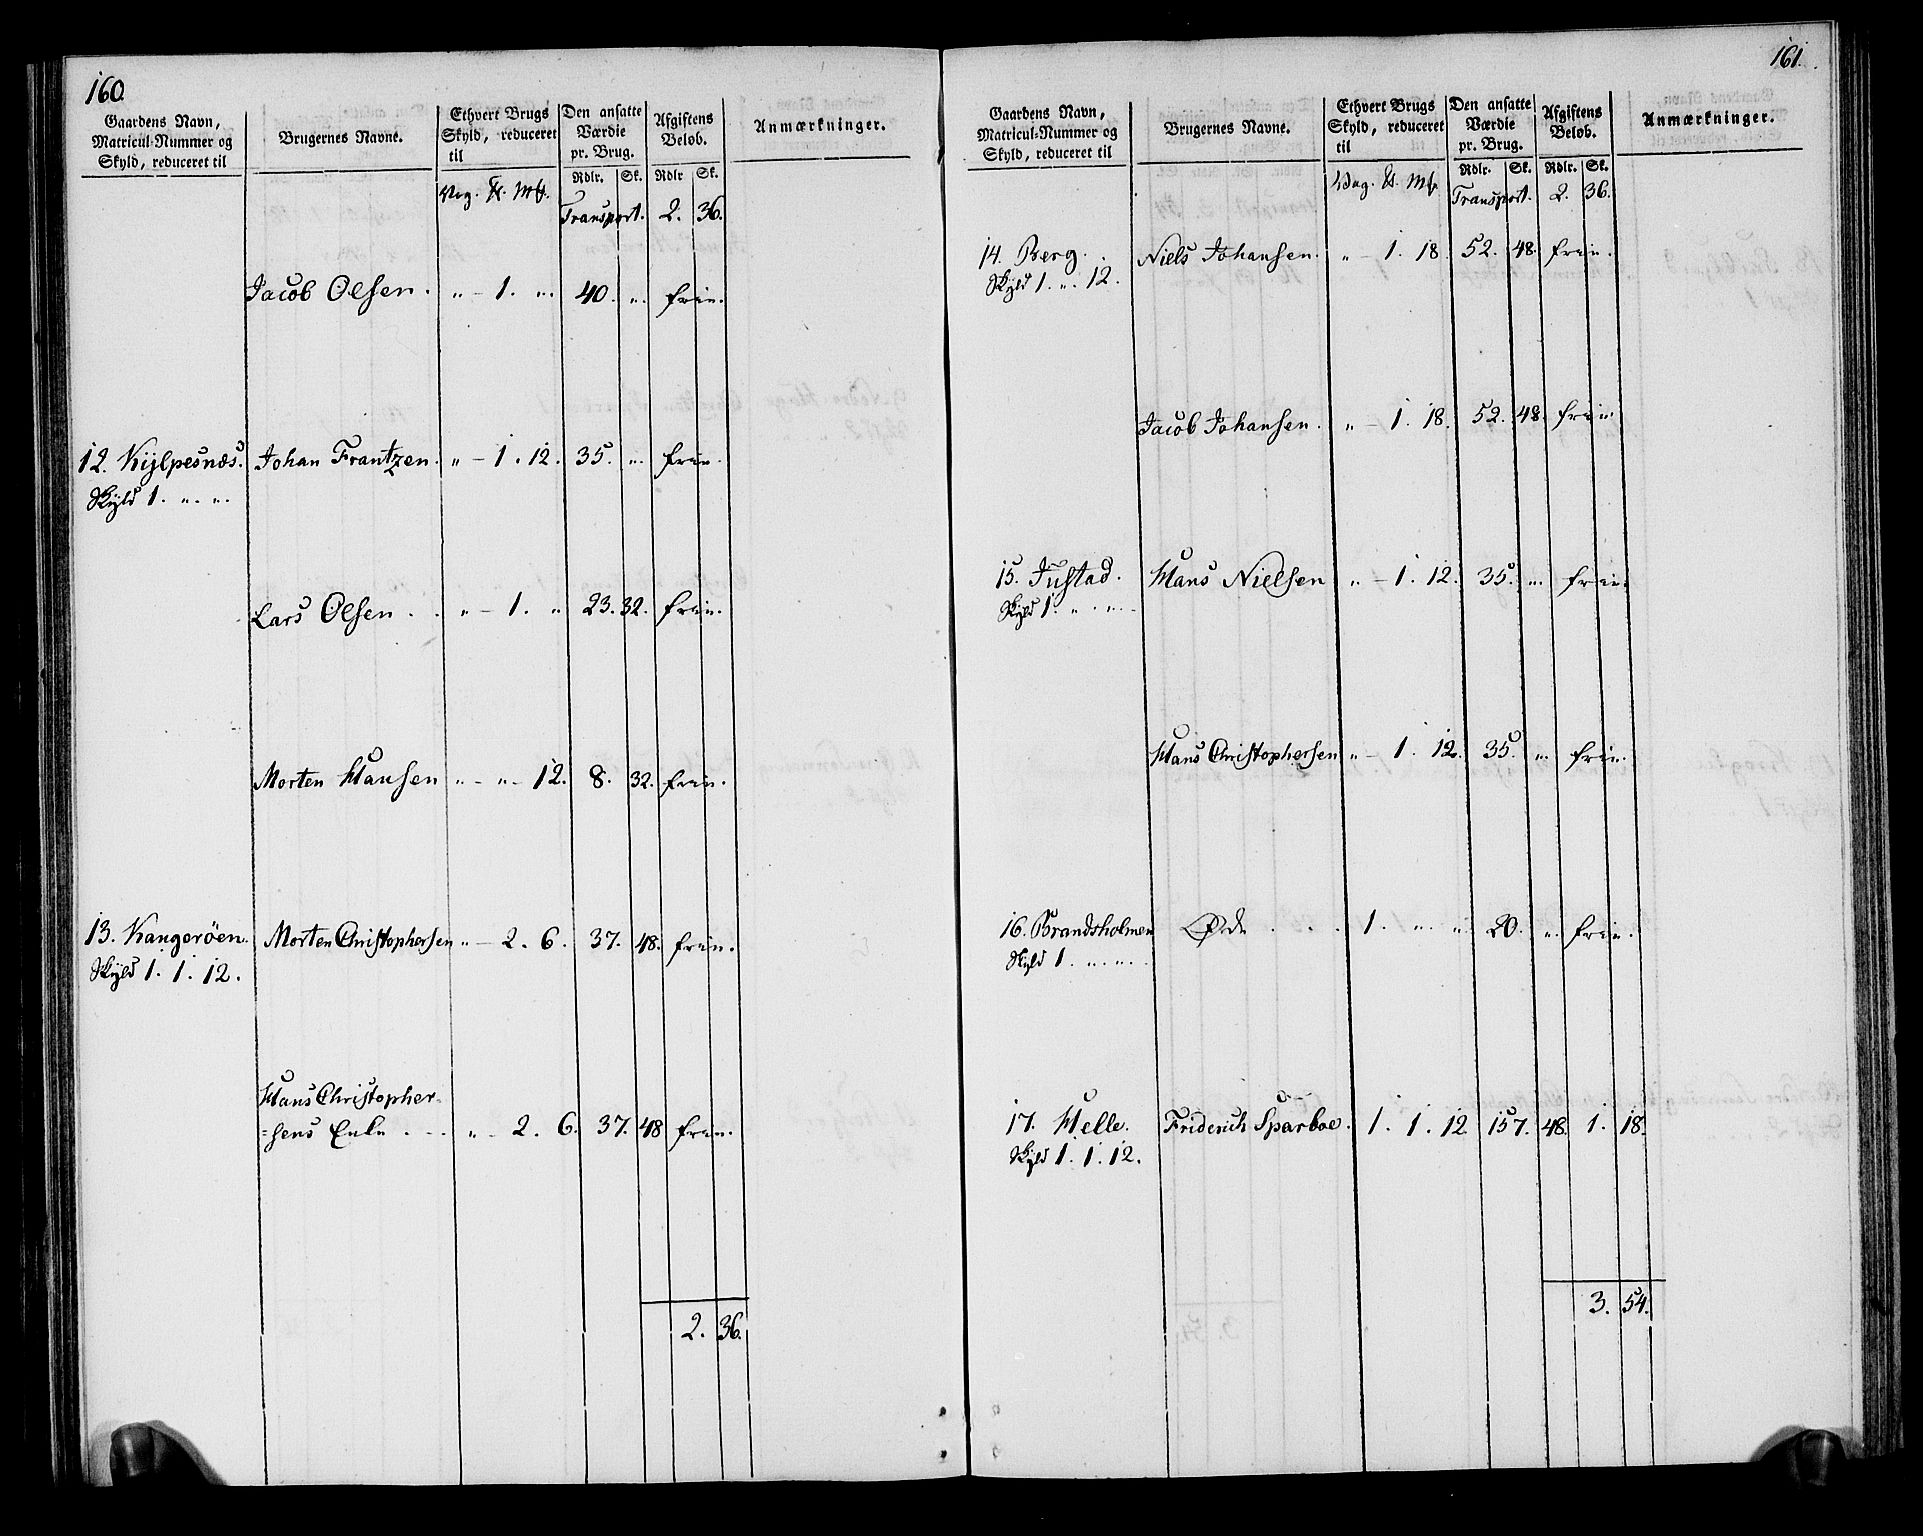 160.
Gaardens Navn, Matricul-Nummer og Skyld, reduceret til
Brugernes Navne.
Ethvert Brugs Skyld, reduceret til
Den ansatte Værdie pr. Brug.
Afgiftens Beløb.
Anmærkninger.
Rdlr. Sk. Rdlr Sk.
Vog. ℔. Mk.
Transport. 2. 36.
Jacob Olsen. „ – 1. „. 40. „. frie.
12. Kijlpesnæs. Johan Frantzen. „ – 1. 12. 35. „. frie.
Skyld 1. „. „.
Lars Olsen . . „ – 1. „ 23. 32. frie.
Morten Hansen „ – „ – 12. 8. 32. frie.
13. Kangeröen. Morten Christophersen „ – 2. 6. 37. 48. frie.
Skyld 1. 1. 12.
Hans Christopher-
=sens Enke . . . „ – 2. 6. 37. 48 frie.
2. 36.
161.
Gaardens Navn, Matricul-Nummer og Skyld, reduceret til
Brugernes Navne.
Ethvert Brugs Skyld, reduceret til
Den ansatte Værdie pr. Brug.
Afgiftens Beløb.
Anmærkninger.
Rdlr. Sk. Rdlr. Sk.
Vog. ℔. Mk.
Transport. 2. 36.
14. Berg. Niels Johansen. „ – 1. 18. 52. 48. frie.
Skyld 1. „. 12.
Jacob Johansen. „ – 1. 18. 52. 48. frie.
15. Justad. Hans Nielsen „ – 1. 12. 35. „. frie.
Skyld 1. „. „.
Hans Christophersen „ – 1. 12. 35. „. frie.
16. Brandsholmen Øde . . . 1. „. „. 20. „. frie.
Skyld 1. „. „.
17. Helle. Friderich Sparboe. 1. 1. 12 157. 48. 1. 18.
Skyld 1. 1. 12.
3. 54.